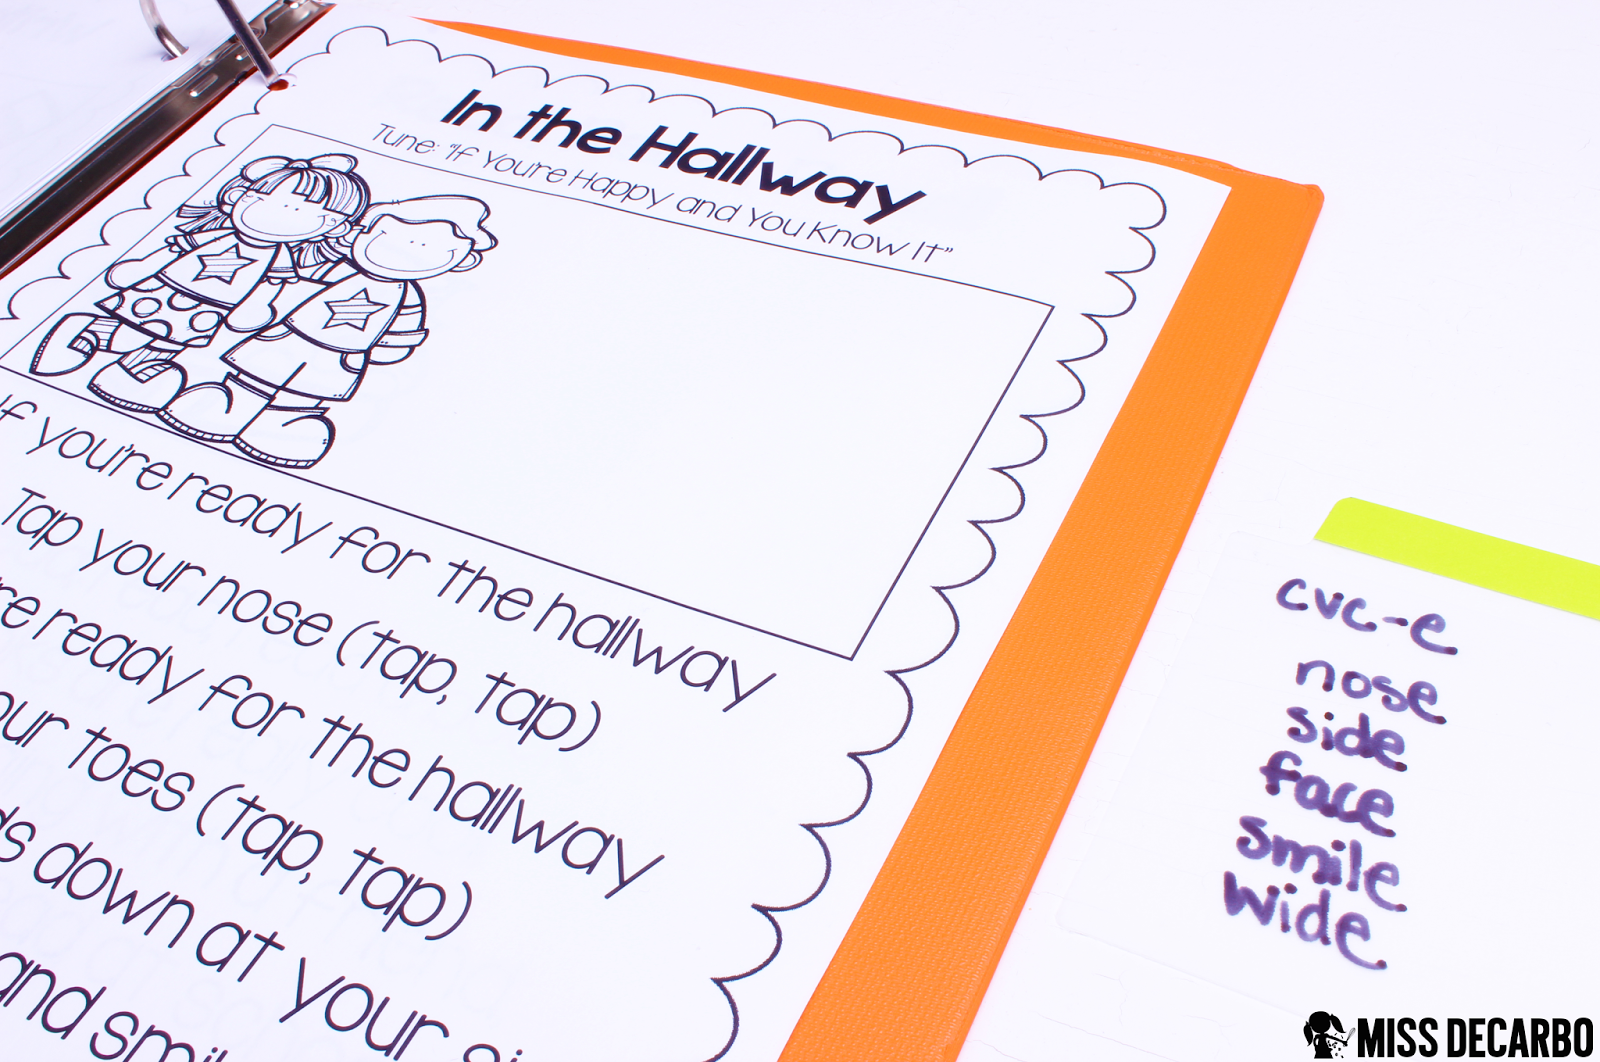 In the Hallway
Tune: "If You're Happy and You Know It"
If you're ready for the hallway
Tap your nose (tap, tap)
ready for the hallway
toes (tap, tap)
down at your
and
cvc-e
nose
side
face
smile
wide
MISS DECARBO